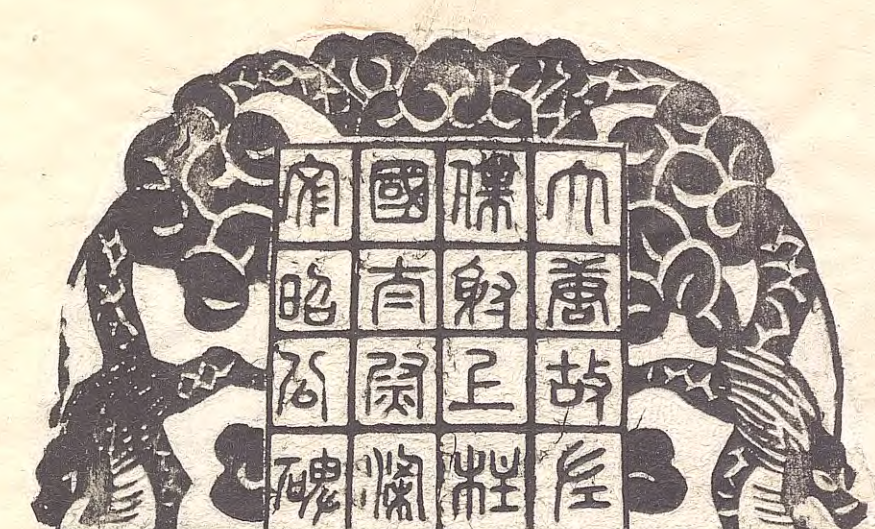 大唐故左
僕射上柱
國太尉梁
文昭公碑